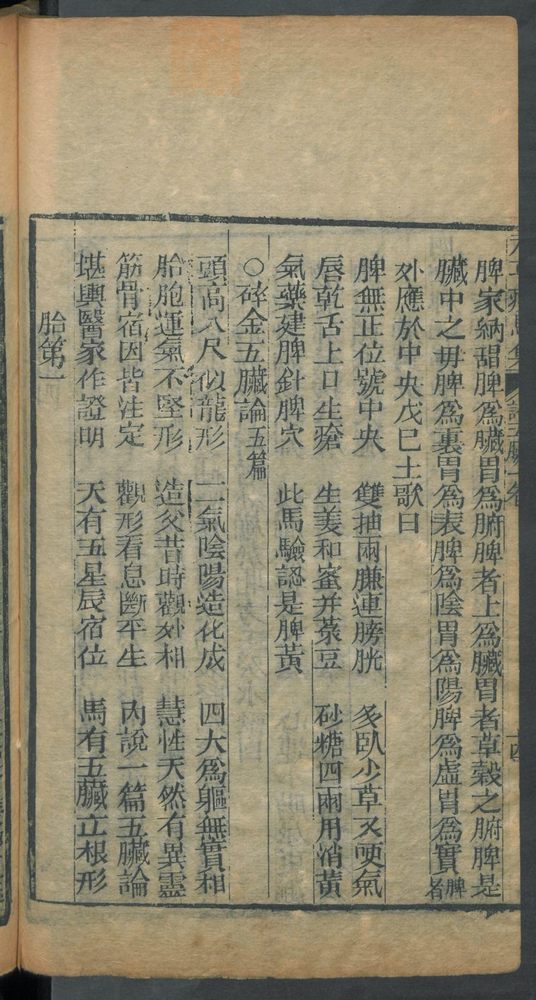 脾家納甜脾爲臟胃爲腑脾者上爲臟胃者草穀之腑脾是
臟中之毋脾爲裏胃爲表脾爲陰胃爲陽脾爲虛胃爲實脾者
外應於中央戊巳土歌曰
脾無正位號中央 雙抽兩臁連膀胱 多臥少草又哽氣
唇乾舌上口生瘡 生姜和蜜并菉豆 砂糖四兩用消黃
氣藥建脾針脾穴 此馬驗認是脾黃
○碎金五臟論五篇
頭高八尺似龍形 二氣陰陽造化成 四大爲軀無實相
胎胞運氣不堅形 造父昔時觀外相 慧性天然有異靈
筋骨宿因皆注定 觀形看息斷平生 内說一篇五臟論
堪輿醫家作證明 天有五星辰宿位 馬有五臟立根形
胎第一